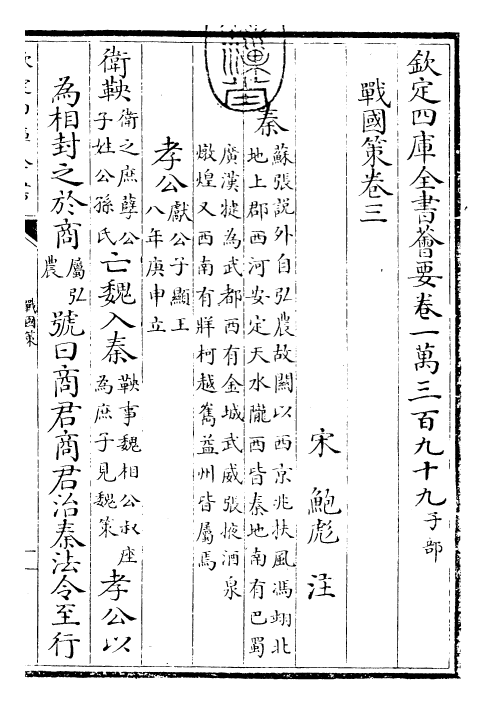 欽定四庫全書薈要卷一萬三百九十九子部
戰國策卷三
宋 鮑彪 注
秦蘇張說外自弘農故關以西京兆扶風馮翊北
地上郡西河安定天水隴西皆秦地南有巴蜀
廣漢揵為武都西有金城武威張掖酒泉
燉煌又西南有牂柯越嶲益州皆屬焉
孝公獻公子顯王
八年庚申立
衛鞅衛之庶孽公
子姓公孫氏亡魏入秦鞅事魏相公叔座
為庶子見魏策孝公以
為相封之於商屬弘
農號曰商君商君治秦法令至行
戰國策